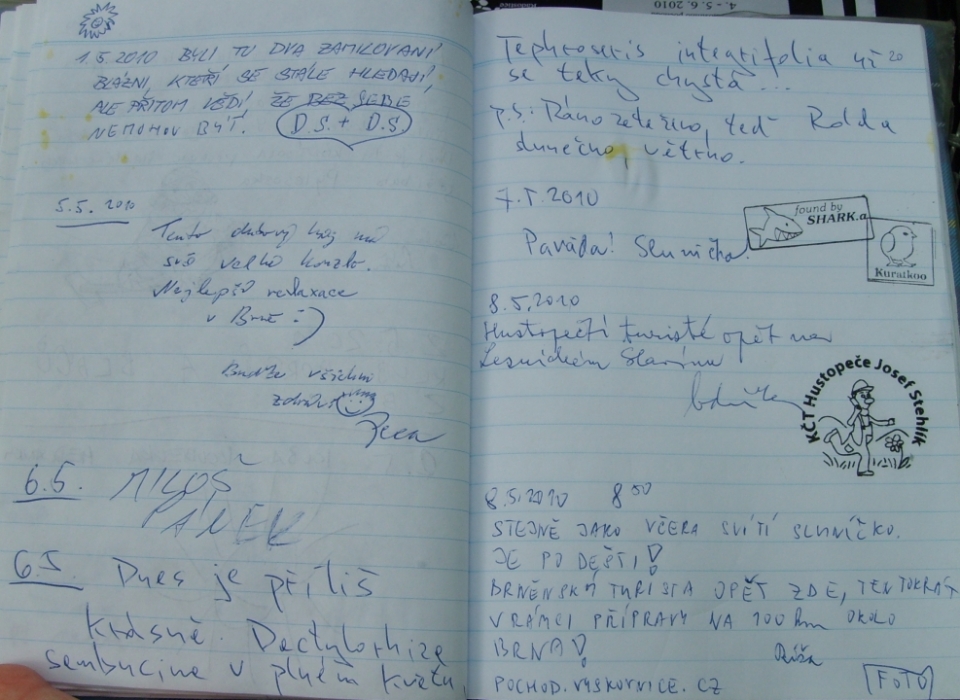 1.5.2010 BYLI TU DVA ZAMILOVANÍ
BLÁZNI, KTEŘÍ SE STÁLE HLEDAJÍ,
ALE PŘITOM VĚDÍ, ŽE BEZ SEBE
NEMOHOU BÝT. D.S. + D.S.
5.5. 2010
Tento dubový háj má
své velké kouzlo.
Nejlepší relaxace
v Brně :)
Buďte všichni
zdraví
6.5. MILOŠ
PÁNEK
6.5. Dnes je příliš
krásně. Dactylorhiza
sambucina v plném květu
4. - 5. 6. 2010
Tephroseris integrifolia už
se taky chystá...
p.s.: Ráno zataženo, teď
slunečno, větrno.
7.5.2010
Paráda! Sluníčko!
found by
SHARK.a
Kuratkoo
8.5.2010
Hustopečtí turisté opět na
Lesnickém Slavínu
KČT Hustopeče Josef Stehlík
8.5.2010 8 50
STEJNĚ JAKO VČERA SVÍTÍ SLUNÍČKO.
JE PO DEŠTI!
BRNĚNSKÝ TURISTA OPĚT ZDE, TENTOKRÁT
V RÁMCI PŘÍPRAVY NA 100 km OKOLO
BRNA!
POCHOD.VYSKOVNICE.CZ
FOTO